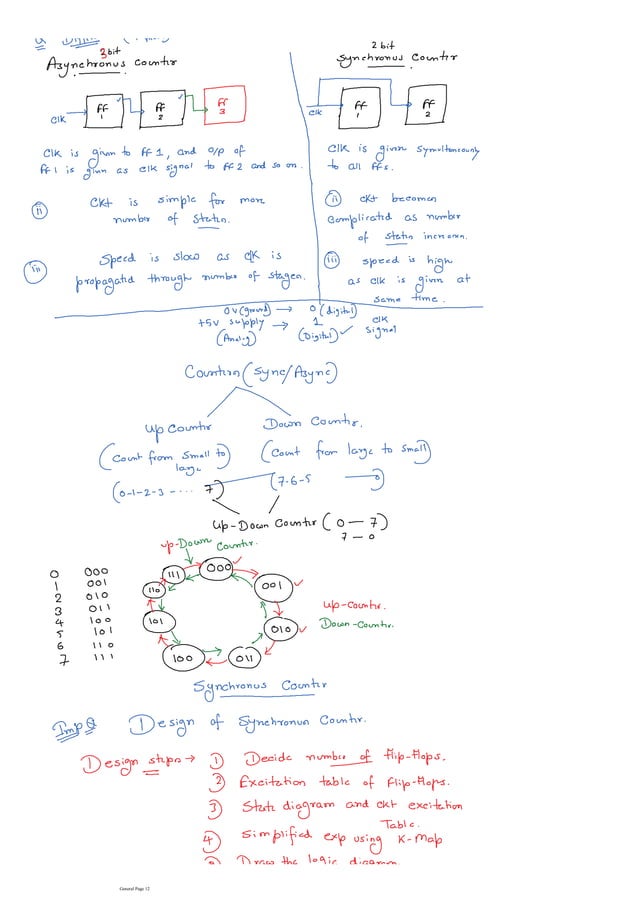 3 bit
Asynchronus Counter
FF 1
FF 2
FF 3
Clk
Clk is given to FF 1, and o/p of
FF1 is given as clk signal to FF2 and so on.
ii) Ckt is simple for more
number of States.
iii) Speed is slow as clk is
propagated through number of stages.
2 bit
Synchronus Counter
FF 1
FF 2
Clk
Clk is given Symultaneously
to all FFs.
ii) ckt becomes
Complicated as number
of States increases.
iii) speed is high
as clk is given at
same time.
0V (ground) → 0 (digital)
+5V supply → 1 clk
(Analog) (Digital) ✓ Signal
Counters (Sync/Async)
Up Counter Down Counter.
(Count from Small to (Count from large to Small)
large
(0-1-2-3-.... 7) (7-6-5 0)
Up-Down Counter (0 — 7)
7 — 0
up-Down Counter.
0 000
1 001
2 010
3 011
4 100
5 101
6 110
7 111
000
001
010
011
100
101
110
111
Up-Counter.
Down-Counter.
Synchronus Counter
Imp Q Design of Synchronus Counter.
Design steps → 1) Decide number of flip-flops.
2) Excitation table of Flip-flops.
3) State diagram and ckt excitation
Table.
4) Simplified exp using K-Map
Draw the logic diagram
General Page 12